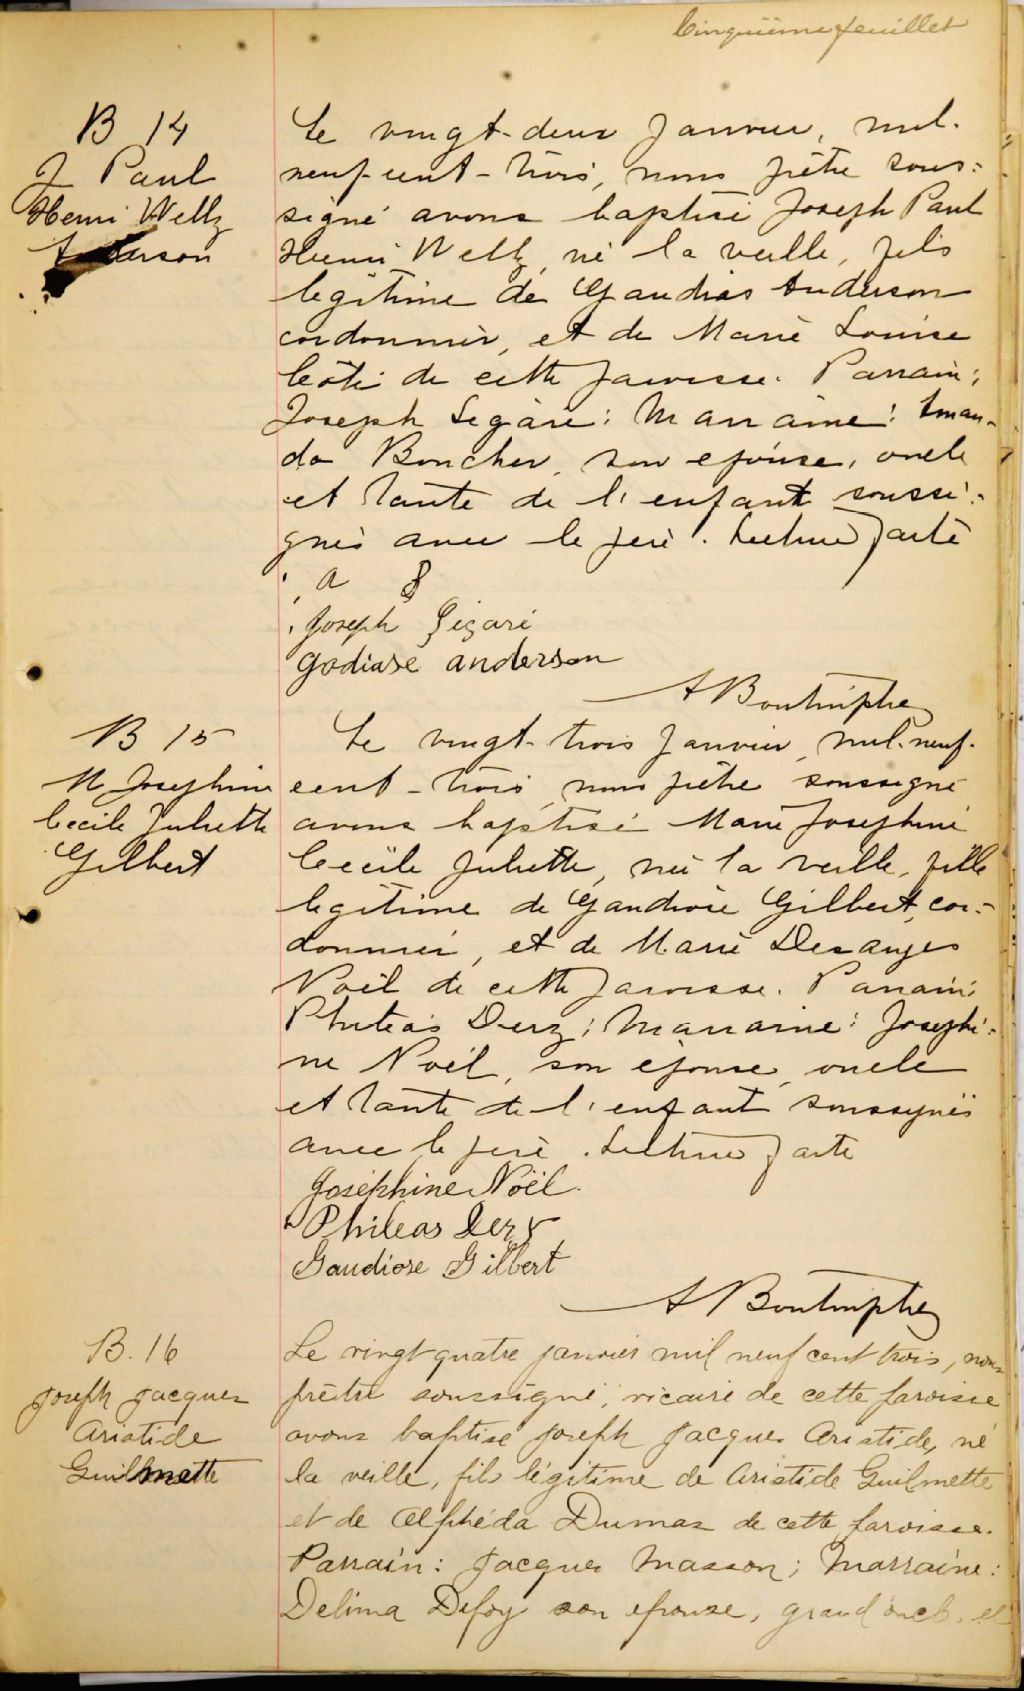 Cinquième feuillet
B 14
J Paul
Henri Welly
Anderson
Le vingt-deux Janvier, mil-
neuf-cent-trois, nous prêtre sous-
signé avons baptisé Joseph Paul
Henri Welly, né la veille, fils
legitime de Gaudias Anderson
cordonnier, et de Marie Louise
Côté de cette paroisse. Parrain:
Joseph Segare: Marraine: Aman-
da Boucher, son épouse, oncle
et tante de l'enfant soussi-
gnés avec le père. Lecture faite
A B
Joseph Sigari
Godiase Anderson
A Boutinphe
B 15
M Josephine
Cecile Juliette
Gilbert
Le vingt-trois Janvier, mil-neuf-
cent-trois, nous prêtre soussigné
avons baptisé Marie Josephine
Cecile Juliette, née la veille, fille
legitime de Gaudiose Gilbert, cor-
donnier, et de Marie Desanges
Noël de cette paroisse. Parrain:
Phileas Dery; Marraine: Josephi-
ne Noël, son épouse, oncle
et tante de l'enfant soussignés
avec le père. Lecture faite
Joséphine Noël.
Phileas Dery
Gaudiose Gilbert
A Boutinphe
B. 16
Joseph Jacques
Aristide
Guilmette
Le vingt quatre janvier mil neuf cent trois, nous
prêtre soussigné, vicaire de cette paroisse
avons baptise Joseph Jacques Aristide, né
la veille, fils légitime de Aristide Guilmette
et de Alphéda Dumas de cette paroisse.
Parrain: Jacques Masson; Marraine:
Delima Defoy son epouse, grand oncle et